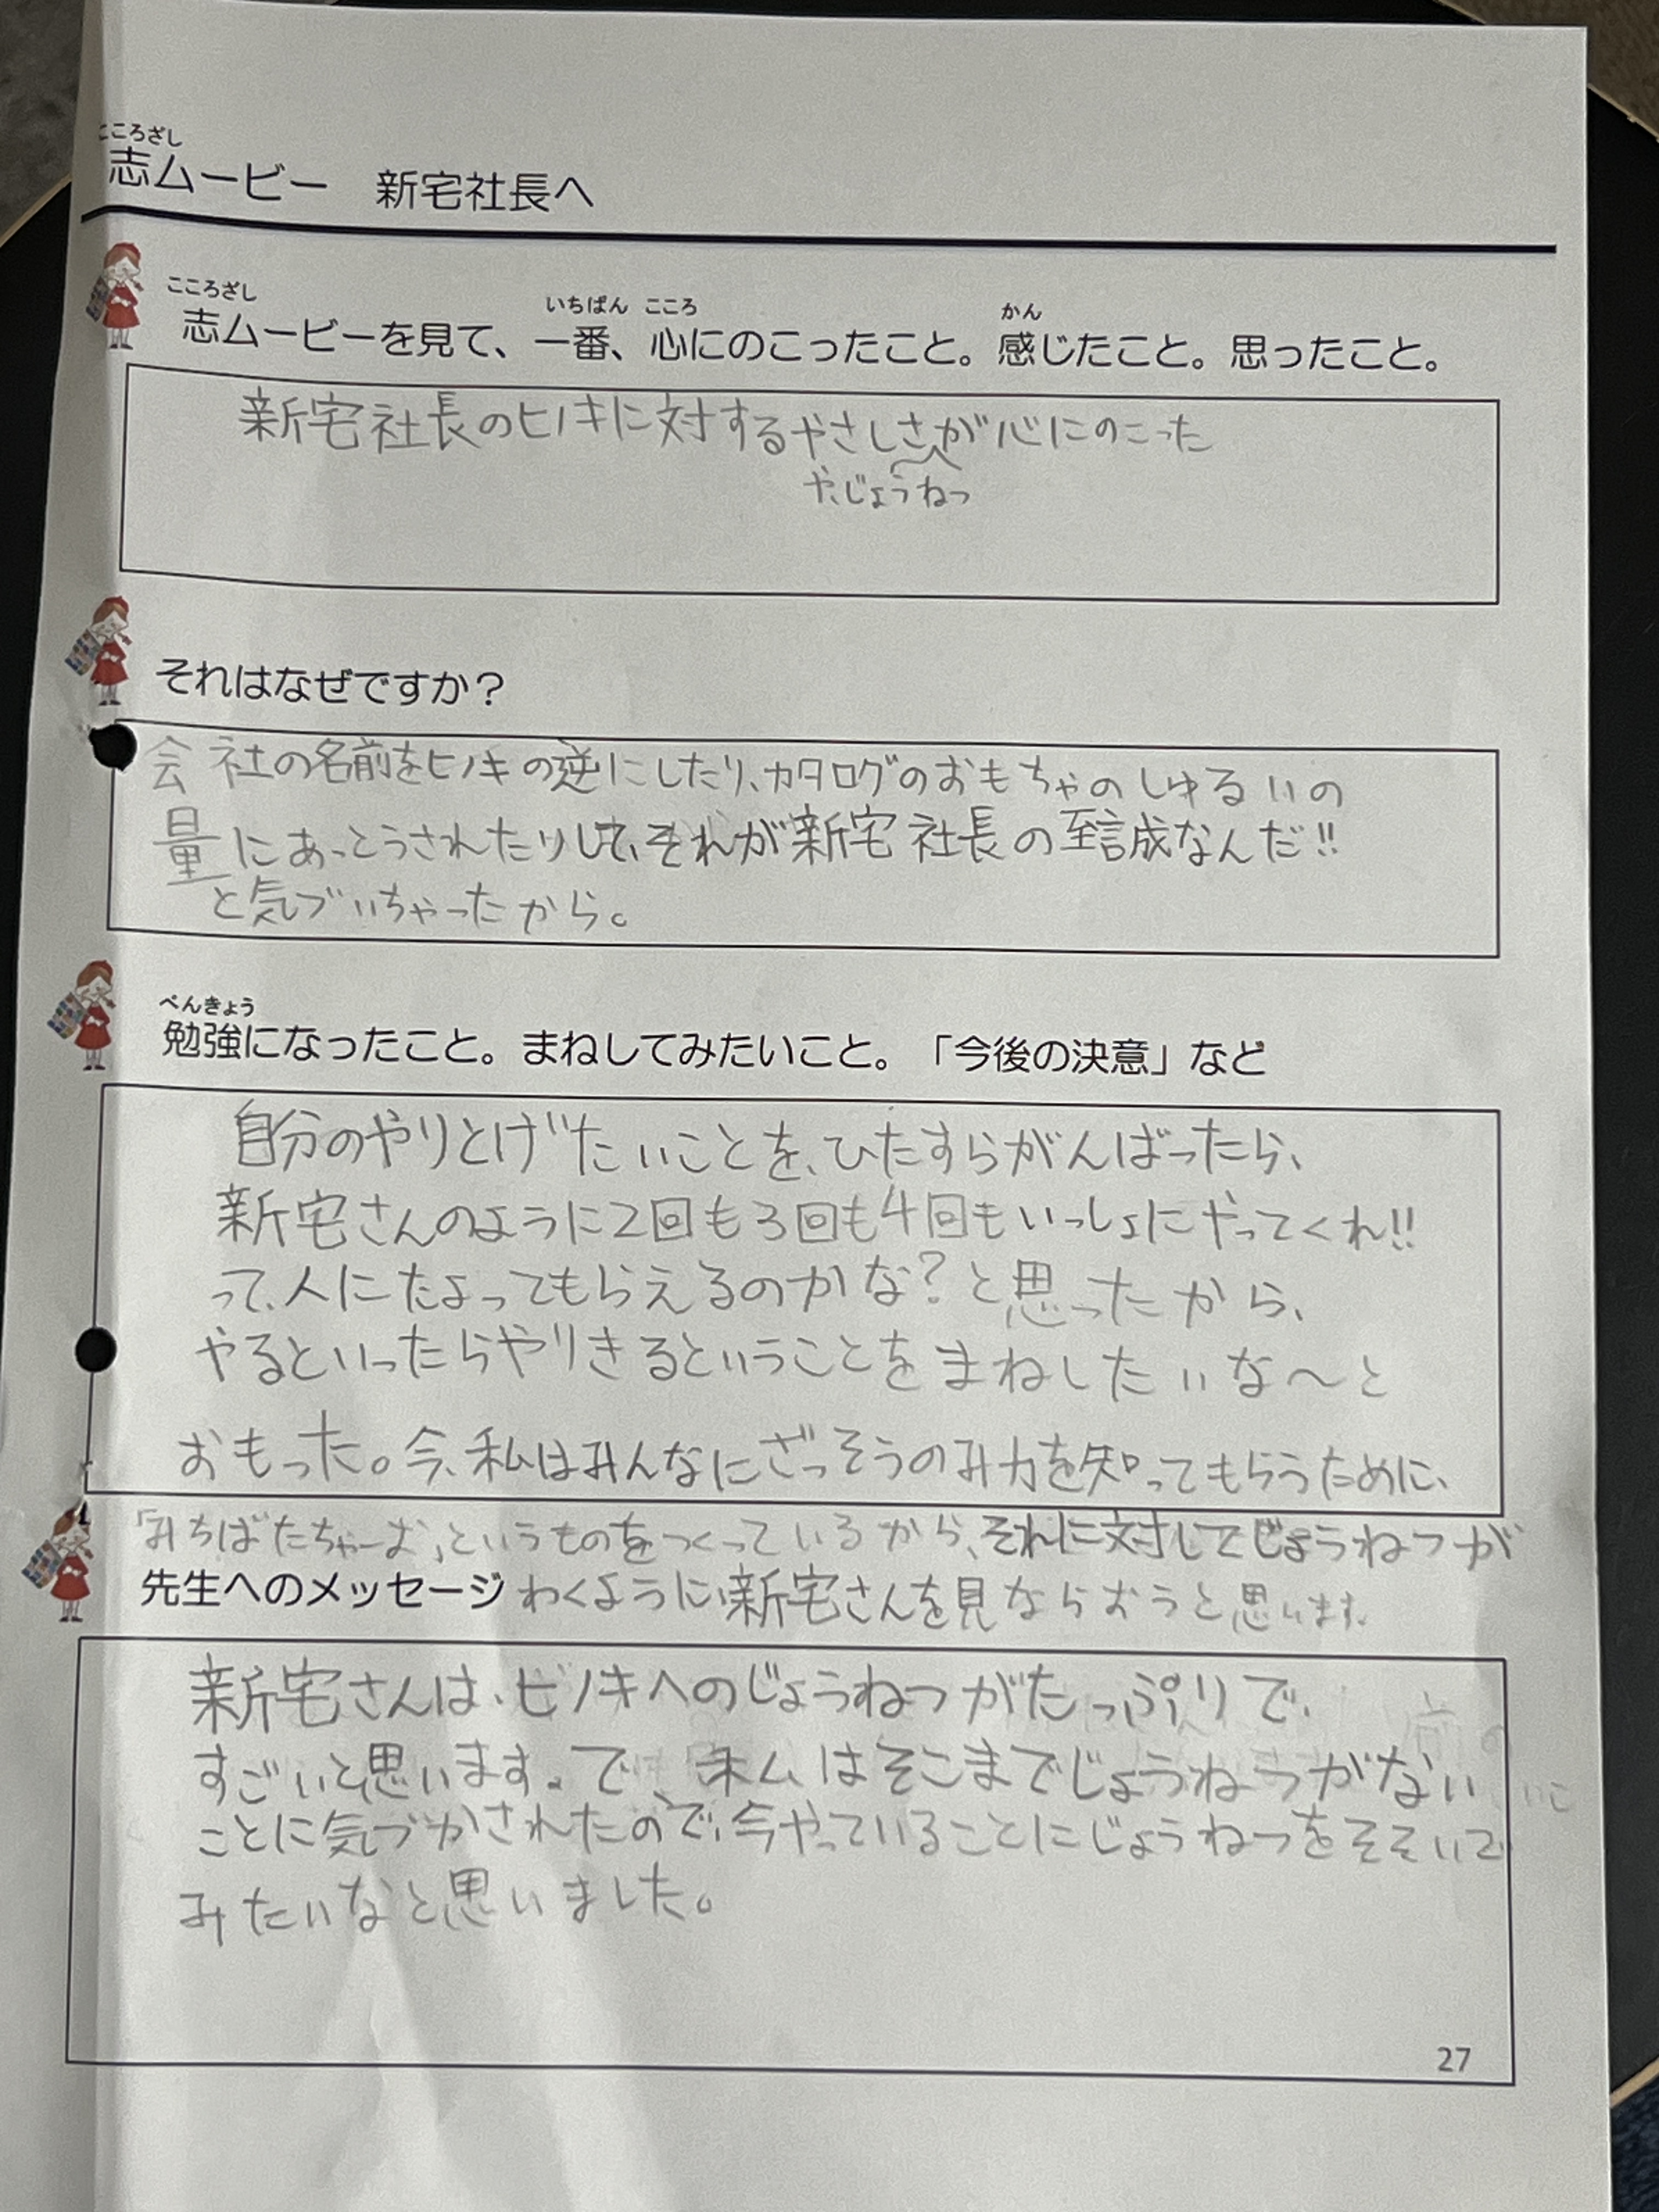 こころざし
志ムービー　新宅社長へ
こころざし　いちばん　こころ　かん
志ムービーを見て、一番、心にのこったこと。感じたこと。思ったこと。
新宅社長のヒノキに対するやさしさが心にのこった
や、じょうねつ
それはなぜですか？
会社の名前をヒノキの逆にしたり、カタログのおもちゃのしゅるいの
量にあっとうされたりして、それが新宅社長の至誠なんだ!!
と気づいちゃったから。
べんきょう
勉強になったこと。まねしてみたいこと。「今後の決意」など
自分のやりとげたいことを、ひたすらがんばったら、
新宅さんのように2回も3回も4回もいっしょにやってくれ!!
って、人にたよってもらえるのかな？と思ったから、
やるといったらやりきるということをまねしたいな〜と
おもった。今、私はみんなにざっそうのみ力を知ってもらうために、
「みちばたちゃーお」というものをつくっているから、それに対してじょうねつが
先生へのメッセージ わくように新宅さんを見ならおうと思います。
新宅さんは、ヒノキへのじょうねつがたっぷりで、
すごいと思います。で 私はそこまでじょうねつがない
ことに気づかされたので、今やっていることにじょうねつをそそいで
みたいなと思いました。
27